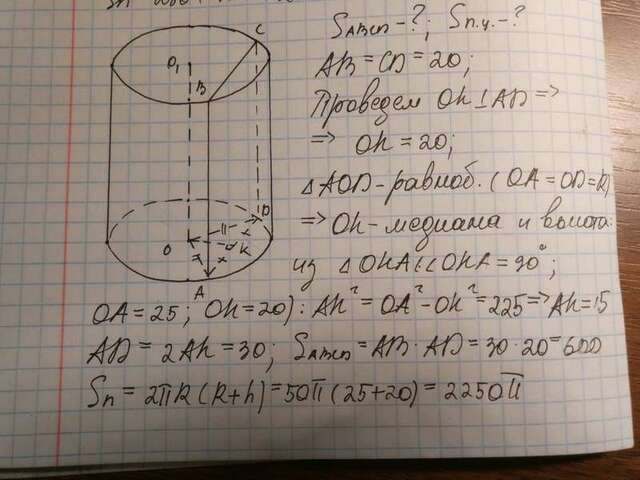 S_ABCD - ?; S п.ц. - ?
AB = CD = 20;
Проведем OK ⊥ AD =>
=> OK = 20;
△AOD - равноб. (OA = OD = R)
=> OK - медиана и высота:
из △OKA (∠OKA = 90°;
OA = 25; OK = 20): AK² = OA² - OK² = 225 => AK = 15
AD = 2AK = 30; S_ABCD = AB · AD = 30 · 20 = 600
Sп = 2πR (R + h) = 50π (25 + 20) = 2250π
C
O₁
B
D
O
K
A